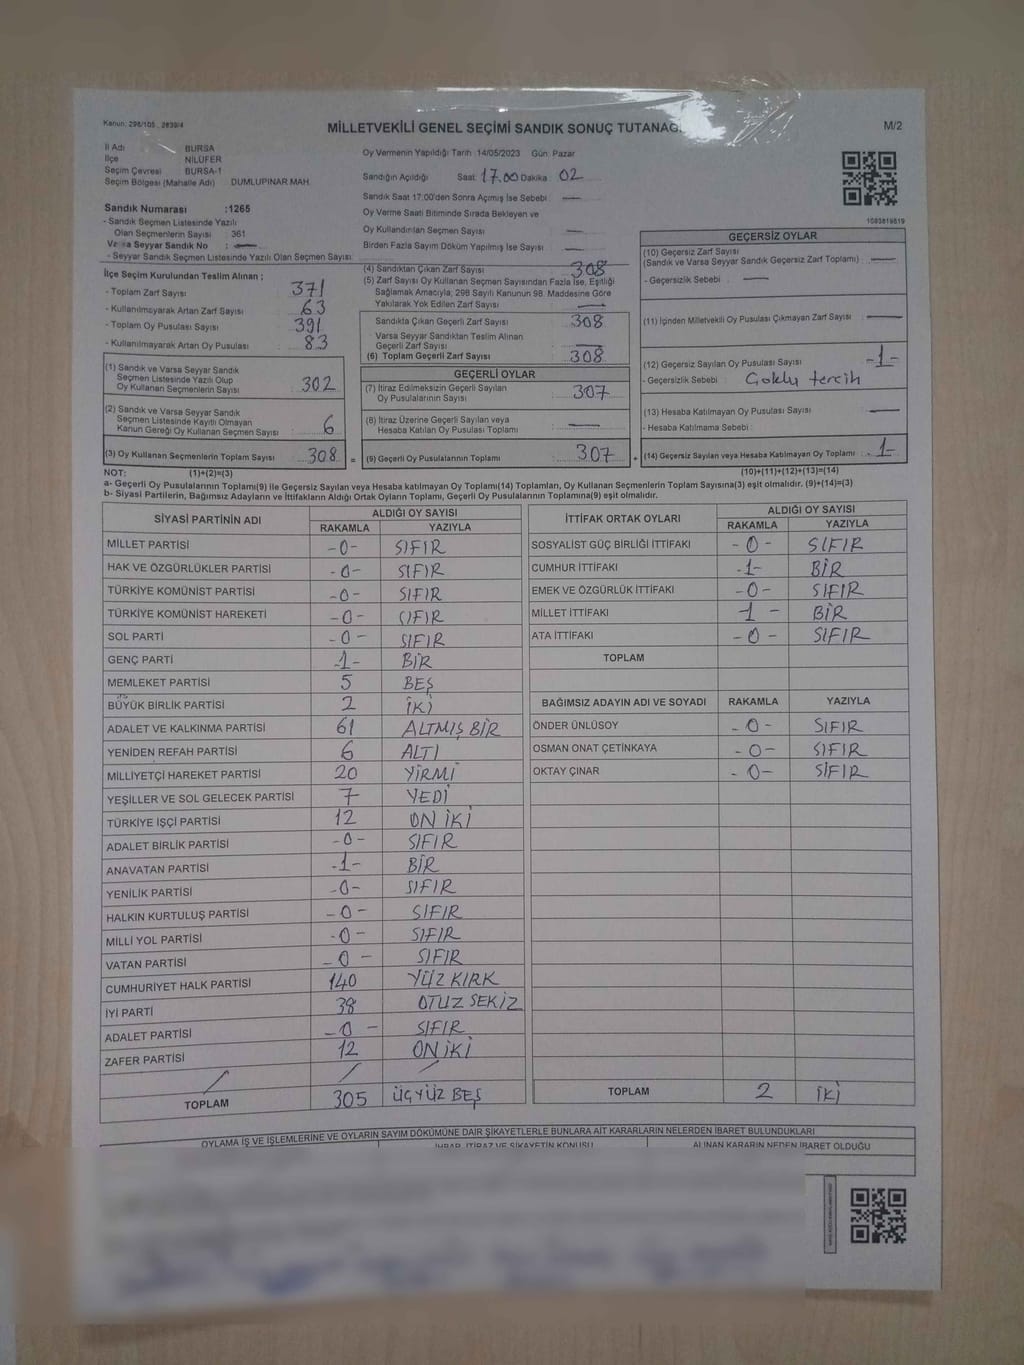 Kanun: 298/105 , 2839/4
MİLLETVEKİLİ GENEL SEÇİMİ SANDIK SONUÇ TUTANAĞI
M/2
İl Adı BURSA
İlçe NİLÜFER
Seçim Çevresi BURSA-1
Seçim Bölgesi (Mahalle Adı) DUMLUPINAR MAH.
Sandık Numarası :1265
- Sandık Seçmen Listesinde Yazılı
Olan Seçmenlerin Sayısı : 361
Varsa Seyyar Sandık No : —
- Seyyar Sandık Seçmen Listesinde Yazılı Olan Seçmen Sayısı:
Oy Vermenin Yapıldığı Tarih :14/05/2023 Gün: Pazar
Sandığın Açıldığı Saat: 17.00 Dakika 02
Sandık Saat 17:00'den Sonra Açımış İse Sebebi —
Oy Verme Saati Bitiminde Sırada Bekleyen ve
Oy Kullandırılan Seçmen Sayısı —
Birden Fazla Sayım Döküm Yapılmış İse Sayısı —
1083819819
İlçe Seçim Kurulundan Teslim Alınan ;
- Toplam Zarf Sayısı 371
- Kullanılmayarak Artan Zarf Sayısı 63
- Toplam Oy Pusulası Sayısı 391
- Kullanılmayarak Artan Oy Pusulası 83
(1) Sandık ve Varsa Seyyar Sandık
Seçmen Listesinde Yazılı Olup
Oy Kullanan Seçmenlerin Sayısı 302
(2) Sandık ve Varsa Seyyar Sandık
Seçmen Listesinde Kayıtlı Olmayan
Kanun Gereği Oy Kullanan Seçmen Sayısı 6
(3) Oy Kullanan Seçmenlerin Toplam Sayısı 308 =
(4) Sandıktan Çıkan Zarf Sayısı 308
(5) Zarf Sayısı Oy Kullanan Seçmen Sayısından Fazla İse, Eşitliği
Sağlamak Amacıyla, 298 Sayılı Kanunun 98. Maddesine Göre
Yakılarak Yok Edilen Zarf Sayısı —
Sandıkta Çıkan Geçerli Zarf Sayısı 308
Varsa Seyyar Sandıktan Teslim Alınan
Geçerli Zarf Sayısı —
(6) Toplam Geçerli Zarf Sayısı 308
GEÇERLİ OYLAR
(7) İtiraz Edilmeksizin Geçerli Sayılan
Oy Pusulalarının Sayısı 307
(8) İtiraz Üzerine Geçerli Sayılan veya
Hesaba Katılan Oy Pusulası Toplamı —
(9) Geçerli Oy Pusulalarının Toplamı 307 +
GEÇERSİZ OYLAR
(10) Geçersiz Zarf Sayısı
(Sandık ve Varsa Seyyar Sandık Geçersiz Zarf Toplamı) —
- Geçersizlik Sebebi : —
(11) İçinden Milletvekili Oy Pusulası Çıkmayan Zarf Sayısı —
(12) Geçersiz Sayılan Oy Pusulası Sayısı -1-
- Geçersizlik Sebebi : Çoklu tercih
(13) Hesaba Katılmayan Oy Pusulası Sayısı —
- Hesaba Katılmama Sebebi :
(14) Geçersiz Sayılan veya Hesaba Katılmayan Oy Toplamı -1-
NOT: (1)+(2)=(3)
(10)+(11)+(12)+(13)=(14)
a- Geçerli Oy Pusulalarının Toplamı(9) ile Geçersiz Sayılan veya Hesaba Katılmayan Oy Toplamı(14) Toplamları, Oy Kullanan Seçmenlerin Toplam Sayısına(3) eşit olmalıdır. (9)+(14)=(3)
b- Siyasi Partilerin, Bağımsız Adayların ve İttifakların Aldığı Ortak Oyların Toplamı, Geçerli Oy Pusulalarının Toplamına(9) eşit olmalıdır.
SİYASİ PARTİNİN ADI ALDIĞI OY SAYISI
RAKAMLA YAZIYLA
MİLLET PARTİSİ -0- SIFIR
HAK VE ÖZGÜRLÜKLER PARTİSİ -0- SIFIR
TÜRKİYE KOMÜNİST PARTİSİ -0- SIFIR
TÜRKİYE KOMÜNİST HAREKETİ -0- SIFIR
SOL PARTİ -0- SIFIR
GENÇ PARTİ -1- BİR
MEMLEKET PARTİSİ 5 BEŞ
BÜYÜK BİRLİK PARTİSİ 2 İKİ
ADALET VE KALKINMA PARTİSİ 61 ALTMIŞ BİR
YENİDEN REFAH PARTİSİ 6 ALTI
MİLLİYETÇİ HAREKET PARTİSİ 20 YİRMİ
YEŞİLLER VE SOL GELECEK PARTİSİ 7 YEDİ
TÜRKİYE İŞÇİ PARTİSİ 12 ON İKİ
ADALET BİRLİK PARTİSİ -0- SIFIR
ANAVATAN PARTİSİ -1- BİR
YENİLİK PARTİSİ -0- SIFIR
HALKIN KURTULUŞ PARTİSİ -0- SIFIR
MİLLİ YOL PARTİSİ -0- SIFIR
VATAN PARTİSİ -0- SIFIR
CUMHURİYET HALK PARTİSİ 140 YÜZ KIRK
İYİ PARTİ 38 OTUZ SEKİZ
ADALET PARTİSİ -0- SIFIR
ZAFER PARTİSİ 12 ON İKİ
TOPLAM 305 ÜÇYÜZ BEŞ
İTTİFAK ORTAK OYLARI ALDIĞI OY SAYISI
RAKAMLA YAZIYLA
SOSYALİST GÜÇ BİRLİĞİ İTTİFAKI -0- SIFIR
CUMHUR İTTİFAKI -1- BİR
EMEK VE ÖZGÜRLÜK İTTİFAKI -0- SIFIR
MİLLET İTTİFAKI -1- BİR
ATA İTTİFAKI -0- SIFIR
TOPLAM
BAĞIMSIZ ADAYIN ADI VE SOYADI RAKAMLA YAZIYLA
ÖNDER ÜNLÜSOY -0- SIFIR
OSMAN ONAT ÇETİNKAYA -0- SIFIR
OKTAY ÇINAR -0- SIFIR
TOPLAM 2 İKİ
OYLAMA İŞ VE İŞLEMLERİNE VE OYLARIN SAYIM DÖKÜMÜNE DAİR ŞİKAYETLERLE BUNLARA AİT KARARLARIN NELERDEN İBARET BULUNDUKLARI
İHBAR, İTİRAZ VE ŞİKAYETİN KONUSU ALINAN KARARIN NEDEN İBARET OLDUĞU